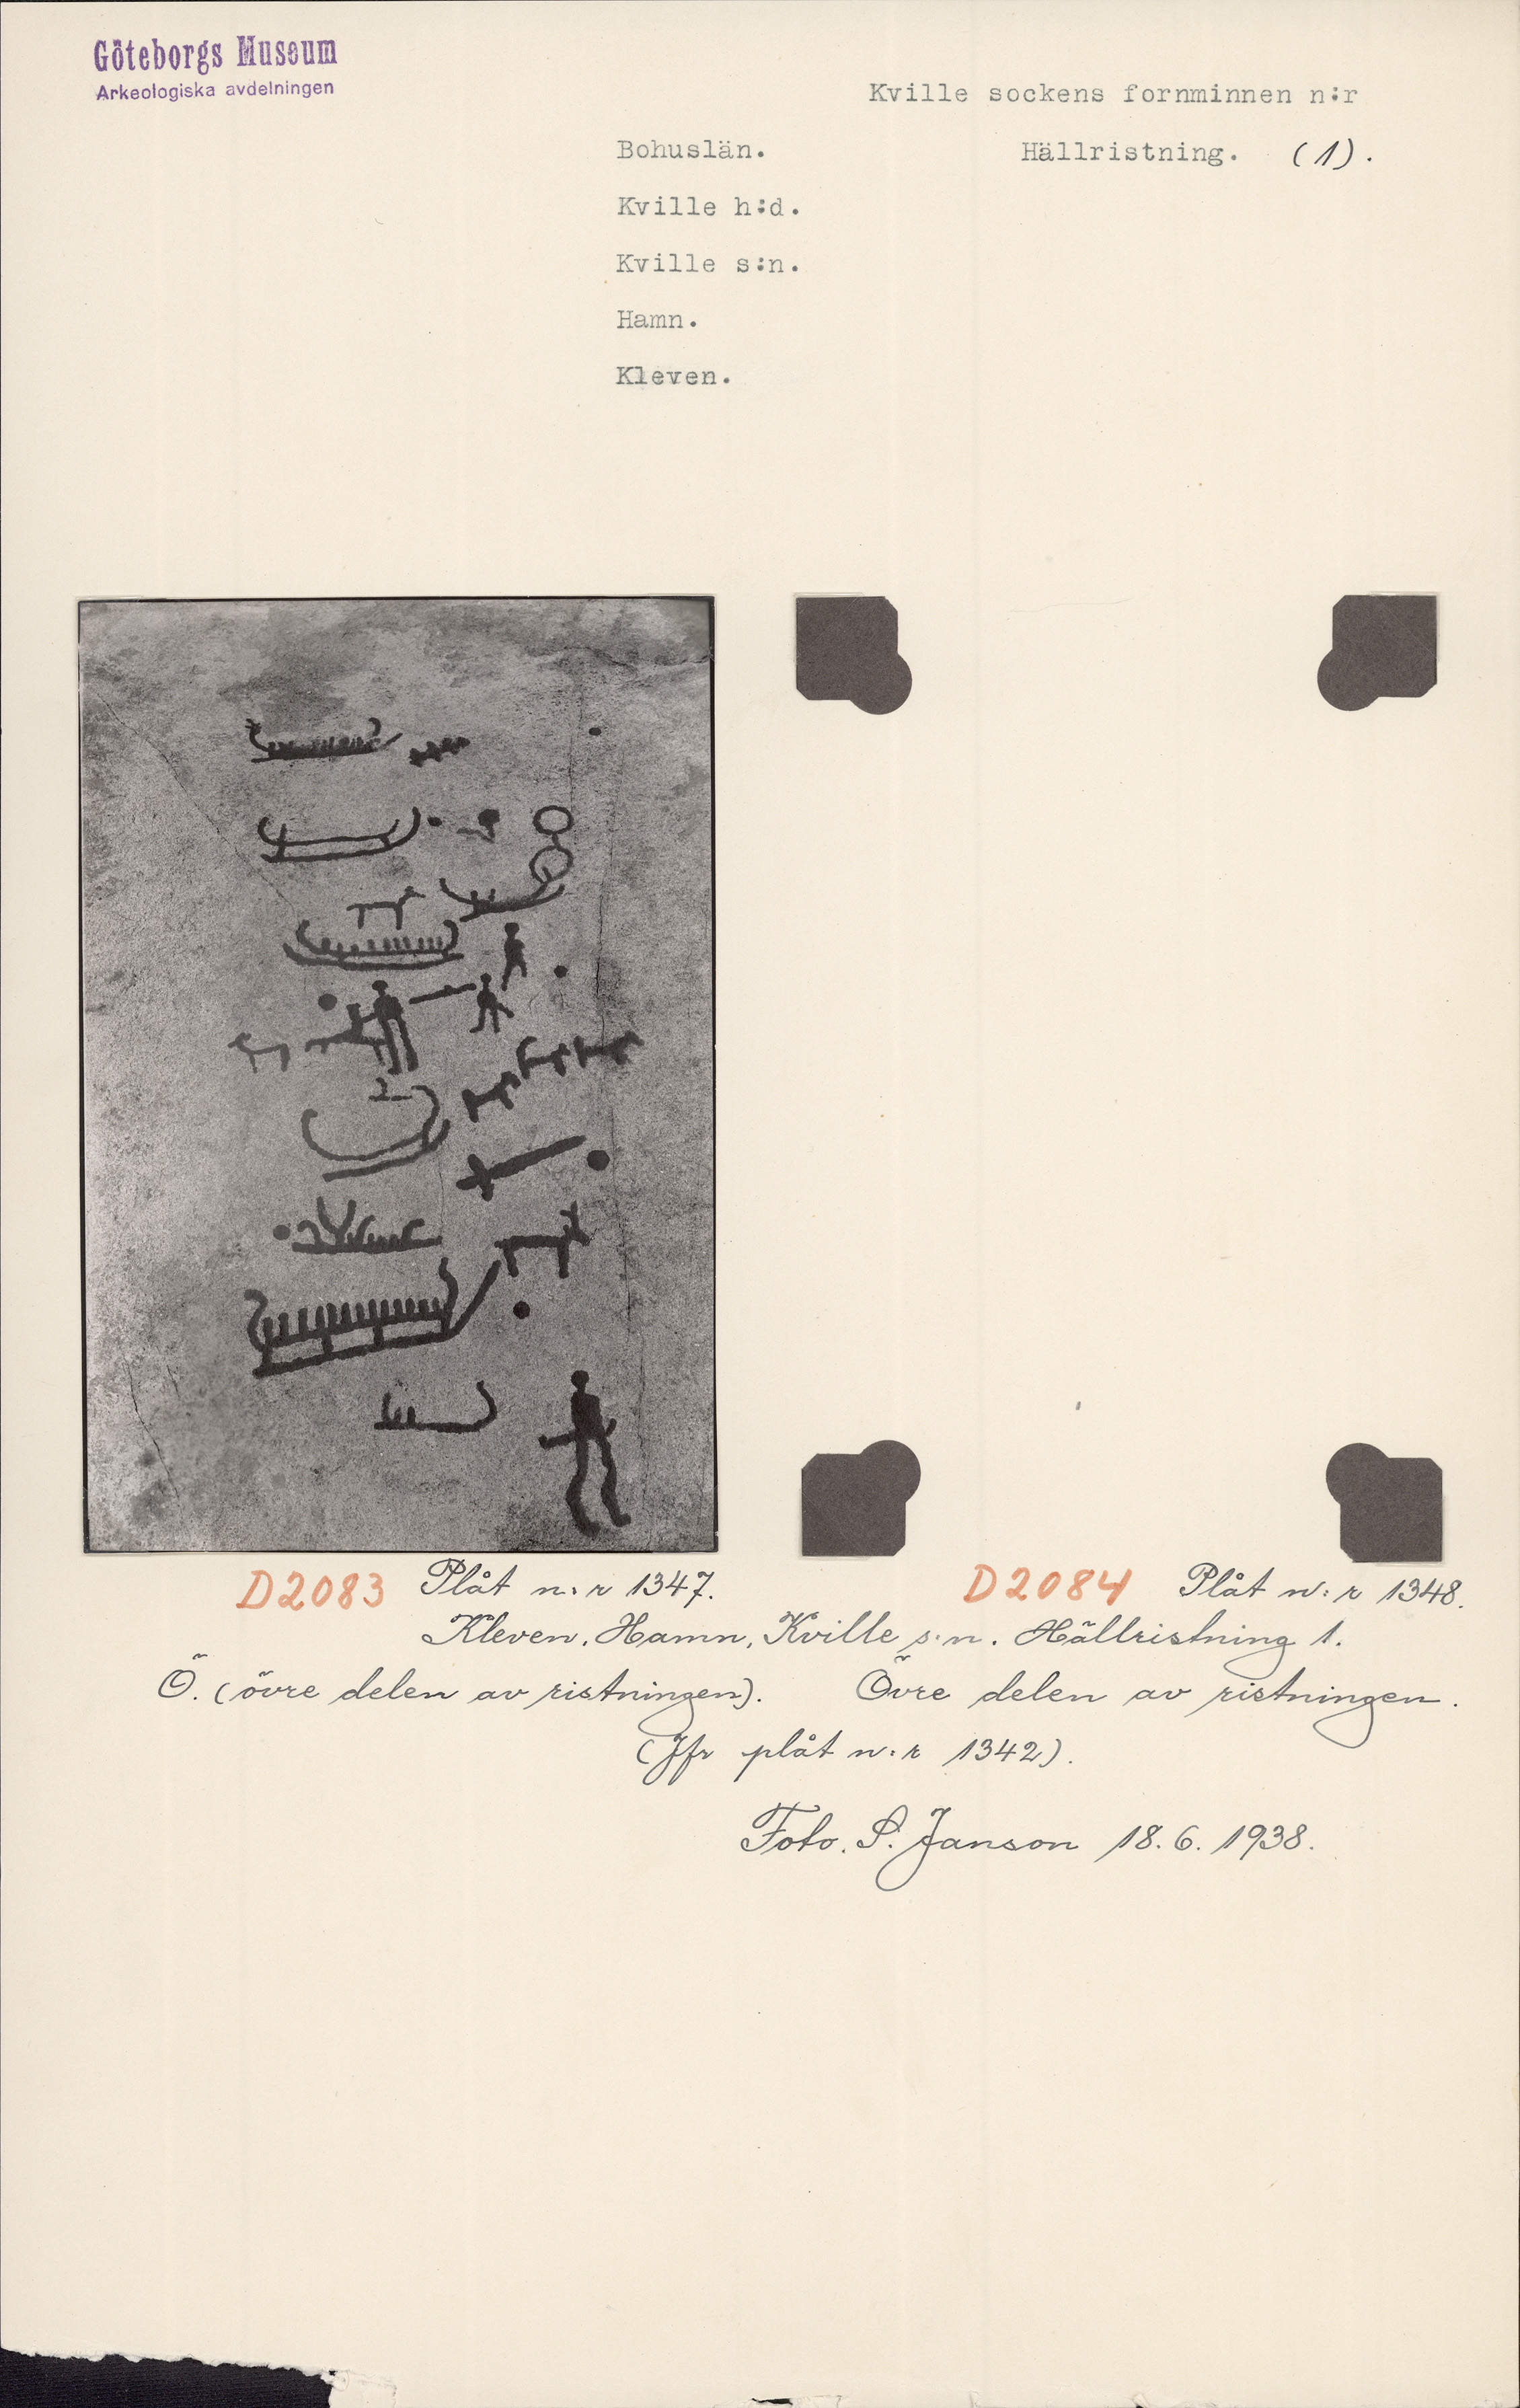 Göteborgs Museum
Arkeologiska avdelningen
Kville sockens fornminnen n:r
Bohuslän. Hällristning. (1).
Kville h:d.
Kville s:n.
Hamn.
Kleven.
D2083 Plåt n:r 1347. D2084 Plåt n:r 1348.
Kleven, Hamn, Kville s:n. Hällristning 1.
Ö. (övre delen av ristningen). Övre delen av ristningen.
(Jfr plåt n:r 1342).
Foto. S. Janson 18.6.1938.